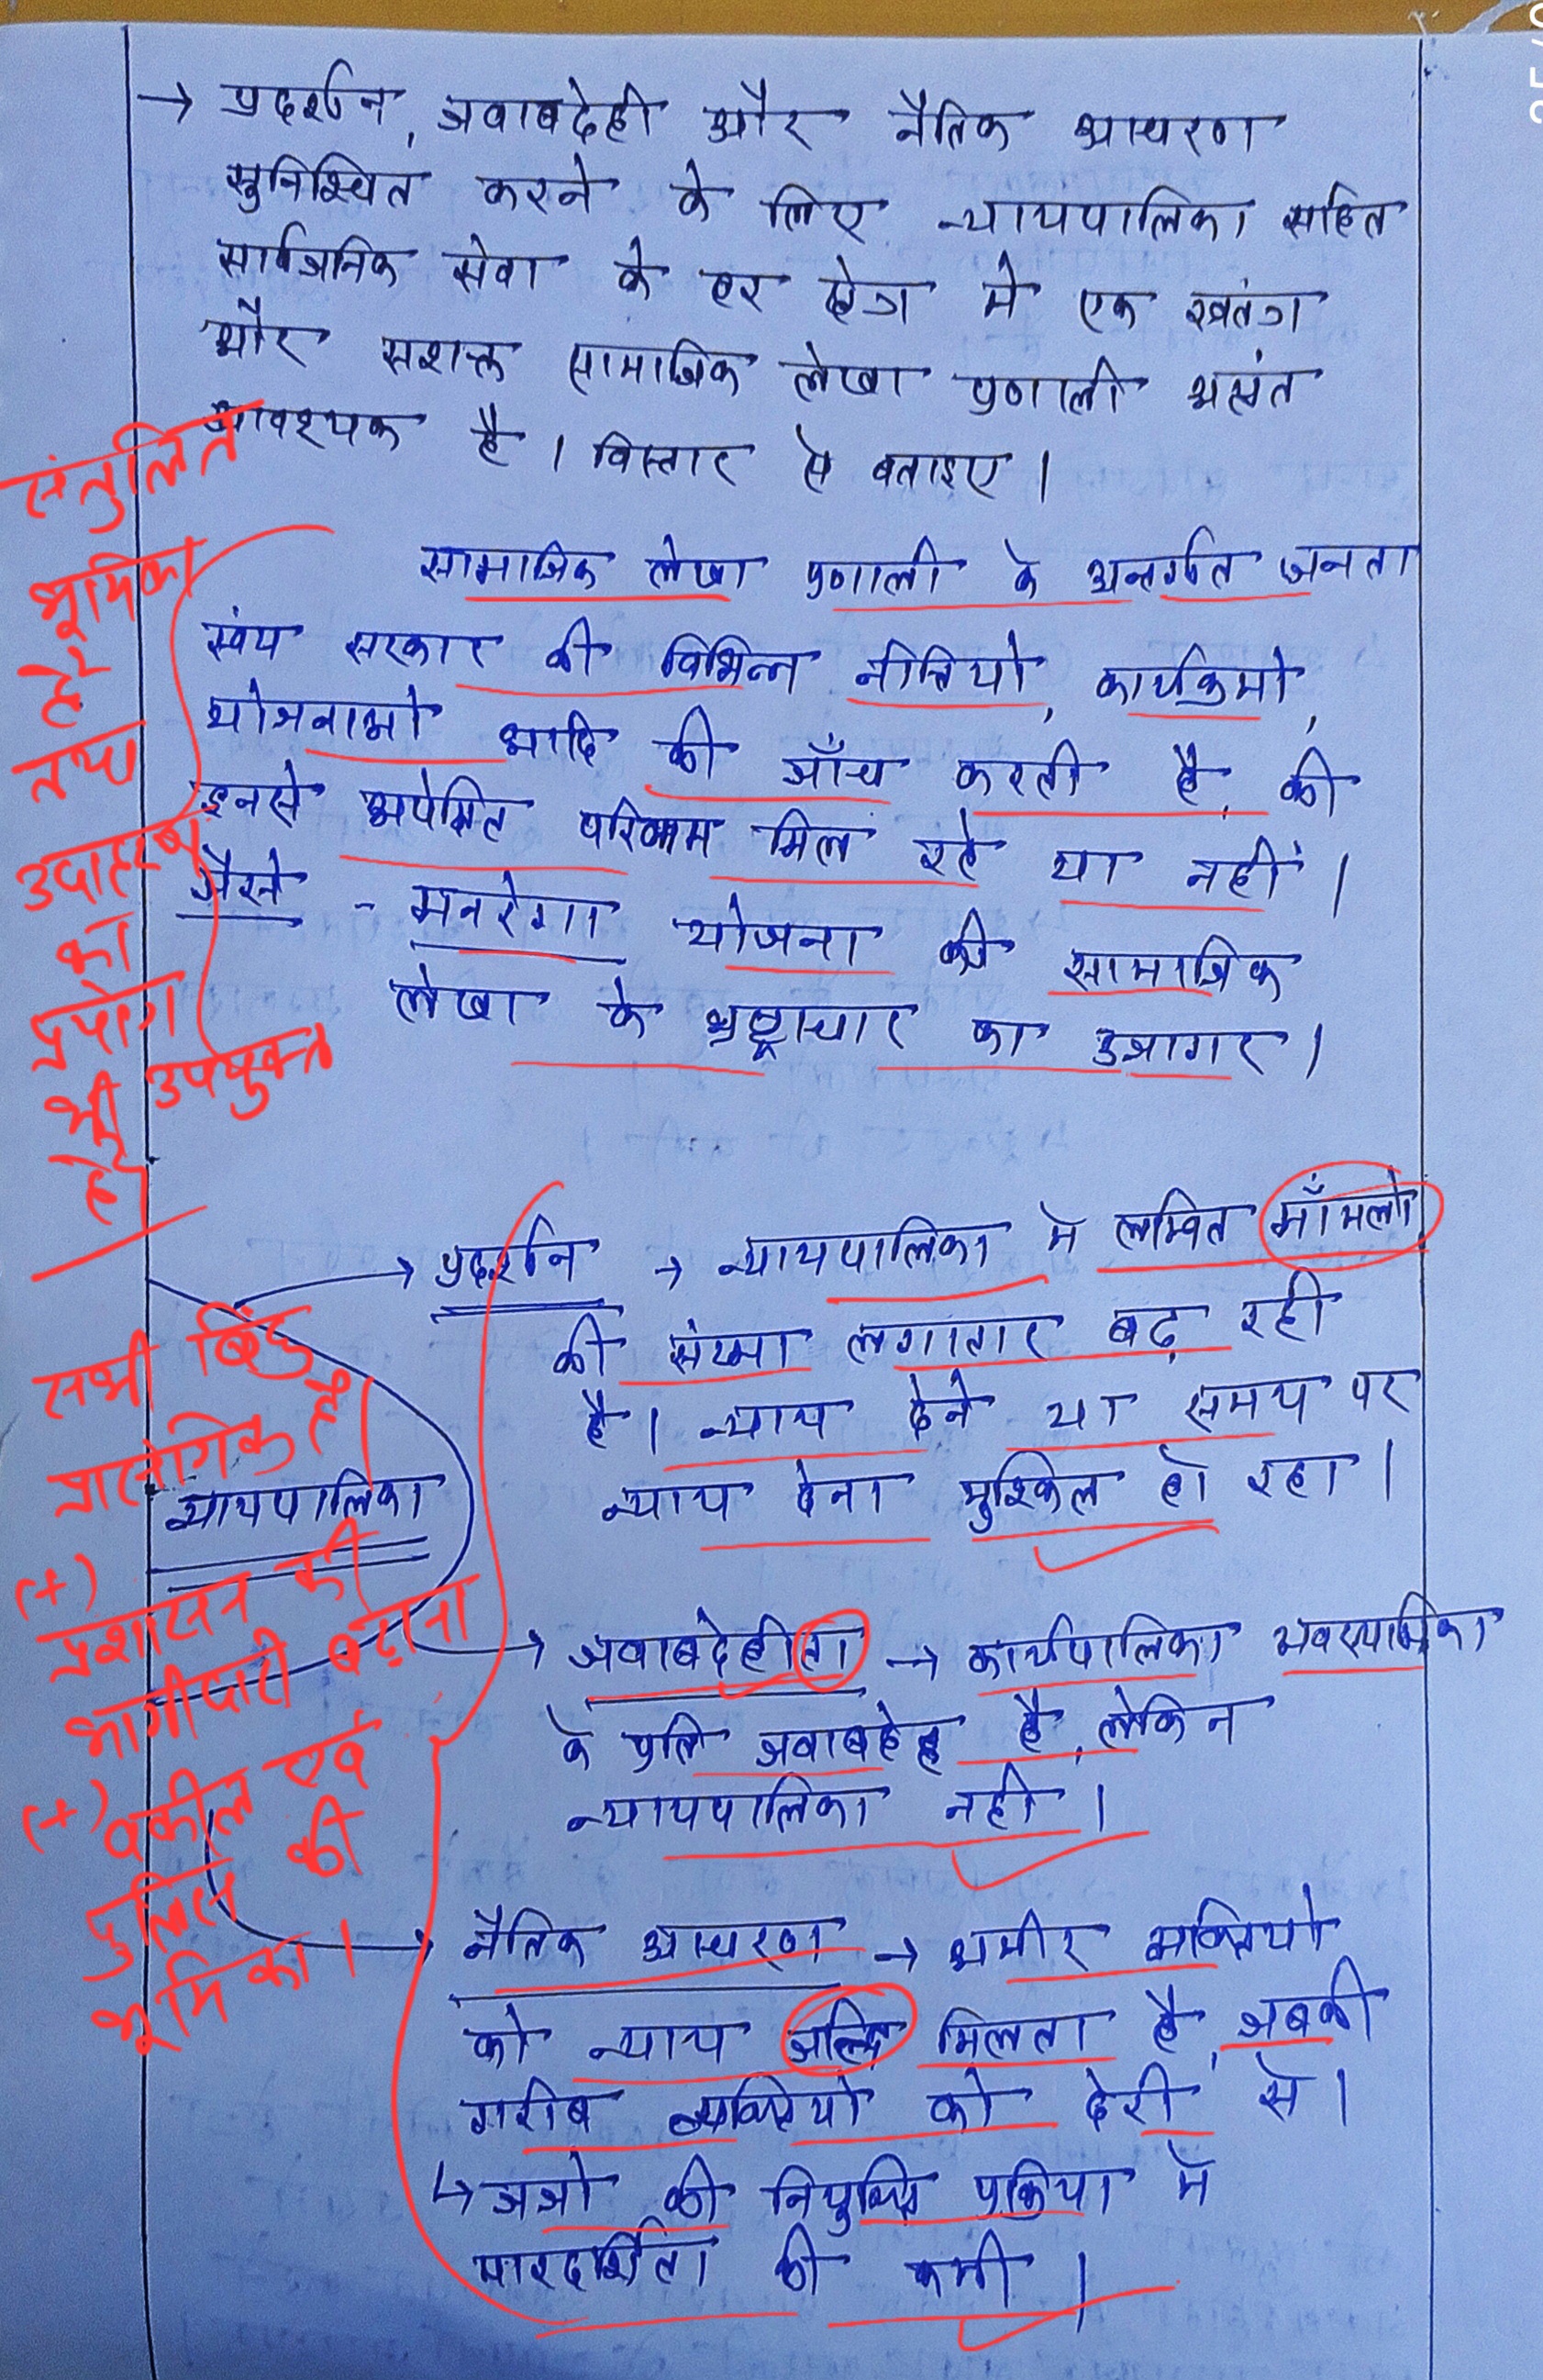 → प्रदर्शन, जवाबदेही और नैतिक आचरण
सुनिश्चित करने के लिए न्यायपालिका सहित
सार्वजनिक सेवा के हर क्षेत्र में एक स्वतंत्र
और सशक्त सामाजिक लेखा प्रणाली अत्यंत
आवश्यक है । विस्तार से बताइए ।
संतुलित
भूमिका
है
तथा
उदाहरण
का
प्रयोग
भी उपयुक्त
है।
सामाजिक लेखा प्रणाली के अन्तर्गत जनता
स्वंय सरकार की विभिन्न नीतियो, कार्यक्रमो,
योजनाओ आदि की जाँच करती है, की
इनसे अपेक्षित परिणाम मिल रहे या नहीं ।
जैसे - मनरेगा योजना की सामाजिक
लेखा के भ्रष्ट्राचार का उजागर ।
→ प्रदर्शन → न्यायपालिका मे लम्बित माँमलो
की संख्या लगातार बढ़ रही
है । न्याय देने या समय पर
न्याय देना मुश्किल हो रहा ।
सभी बिंदु
प्रासंगिक है।
न्यायपालिका
(+)
प्रशासन की
भागीदारी बढ़ाना
(+) वकील एवं
पुलिस की
भूमिका ।
→ जवाबदेहीता → कार्यपालिका व्यवस्थापिका
के प्रति जवाबदेह है, लेकिन
न्यायपालिका नही ।
→ नैतिक आचरण → अमीर व्यक्तियो
को न्याय जल्दि मिलता है, जबकी
गरीब व्यक्तियो को देरी से ।
↳ जजो की नियुक्ति प्रक्रिया मे
पारदर्शिता की कमी ।